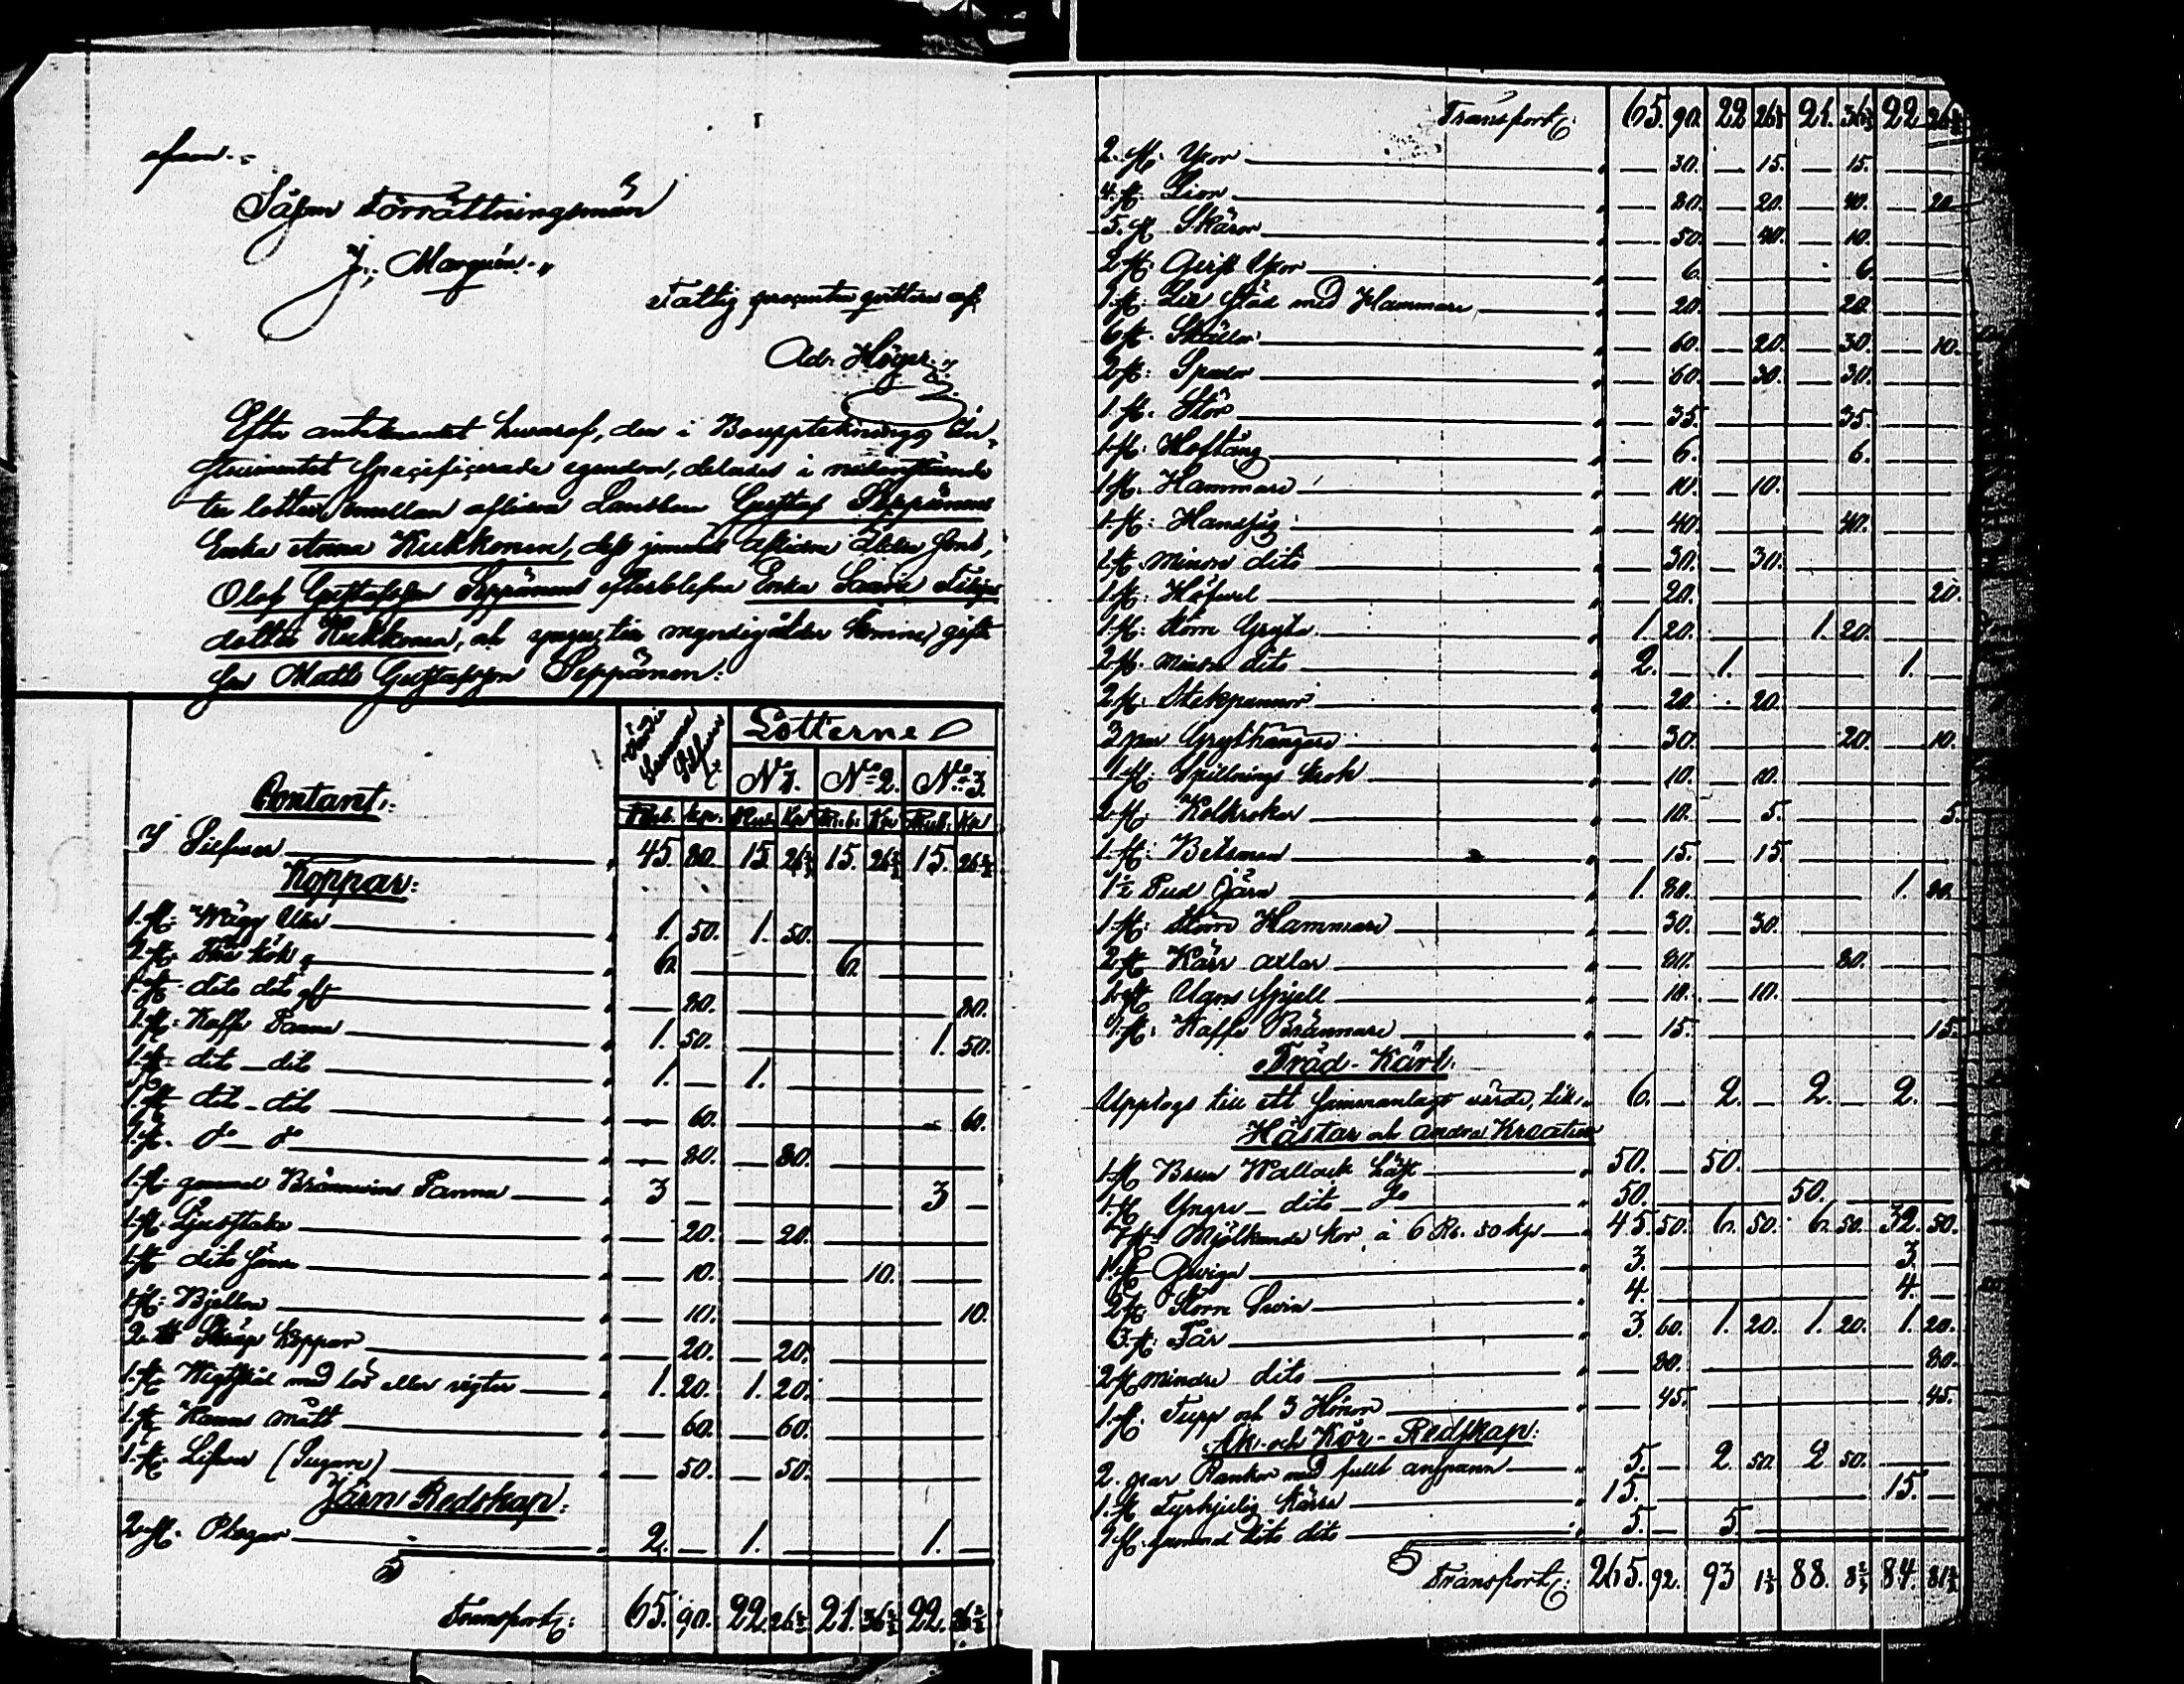 Såsom Förrättningsman
Fattig procenten qvitteras af
Adr. Höger
Efter antecknandet hwaraf, den i Bouppteknings In-
strumentet specificerade egendom, delades i nedanstående
tre lotter emellan aflidne Landbon Gustaf Seppänens
Enka Anna Kukkonen, dess jemväl aflidne äldre sons,
Olof Gustafsson Seppänens efterblefna Enka
dotter Kukkonen, och yngre, till myndig ålder komne, gifte
son Matts Gustafsson Seppänen:
Wärde Summa Silfwer
Lotterne
No 1. No 2. No 3.
Rub. Kp. Rub. Kp Rub. Kp Rub. Kp
Contant:
I Silfwer 45. 80. 15. 26 2/3 15. 26 2/3 15. 26 2/3
Koppar:
1. st. 1. 50. 1. 50.
2. st. 6. 6.
1. st. dito dito 80. 80.
1. st. Kaffe Panna 1. 50. 1. 50.
1. st. dito dito 1. 1.
1. st. dito dito 60. 60.
1. st. do do 80. 80.
1. st. gammal Brännwins Panna 3 3
1. st. Ljusstake 20. 20.
1. st. dito sämre 10. 10.
1. st. Bjellra 10. 10.
2. st. Koppar 20. 20.
1. st. Wigtskål med lod eller vigter 1. 20. 1. 20.
1. st. Kanns mått 60. 60.
1. st. 50. 50.
Järn Redskap:
2. st. Plogar 2. 1. 1.
Transport: 65. 90. 22. 26 2/3 21. 36 2/3 22. 26 2/3
Transport: 65. 90. 22 26 2/3 21. 36 2/3 22 26 2/3
2. st. Yxor 30. 15. 15.
4. st. Lior 80. 20. 40. 20
5. st. Skäror 50. 40. 10.
2. st. Yxor 6. 6.
1. st. Lie städ med Hammare 20. 20.
6 st. 60. 20. 30. 10.
2 st. Spador 60. 30. 30.
1. st. 35. 35.
1. st. Hoftång 6. 6.
1. st. Hammare 10. 10.
1. st. Handsåg 40. 40.
1. st. minore dito 30. 30.
1. st. Höfwel 20. 20.
1. st. större Gryta 1. 20. 1. 20.
2. st. mindre dito 2. 1. 1.
2. st. Stekpannor 20. 20.
3 par Grythängare 30. 20. 10.
1. st. krok 10. 10.
2. st. Kolkrokar 10. 5. 5.
1. st. Betsman 15. 15.
1 1/2 Pud järn 1. 80. 1. 80.
1. st. större Hammare 30. 30.
2. st. Kärr axlar 80. 80.
1. st. Ugns spjell 10. 10.
1. st. Kaffe Brännare 15. 15.
Träd-Kärl:
Upptogs till ett sammanlagt värde, till 6. 2. 2. 2.
Hästar och andra Kreatur
1. st. Brun Wallack häst 50. 50.
1. st. Yngre dito do 50. 50.
7 st. Mjölkande kor a 6 Rb. 50 kp 45. 50. 6. 50. 6. 50. 32. 50.
1. st. Qwiga 3. 3.
2 st. större Swin 4. 4.
6. st. Får 3. 60. 1. 20. 1. 20. 1. 20.
2 st. mindre dito 80. 80.
1. st. Tupp och 3 Hönor 45. 45.
Åk- och Kör-Redskap:
2. par Rankor med fullt anspann 5. 2. 50. 2 50.
1. st. Fyrhjulig kärra 15. 15.
1 st. gammal dito dito 5. 5.
Transport: 265. 92. 93 1 2/3 88. 8 2/3 84. 81 2/3